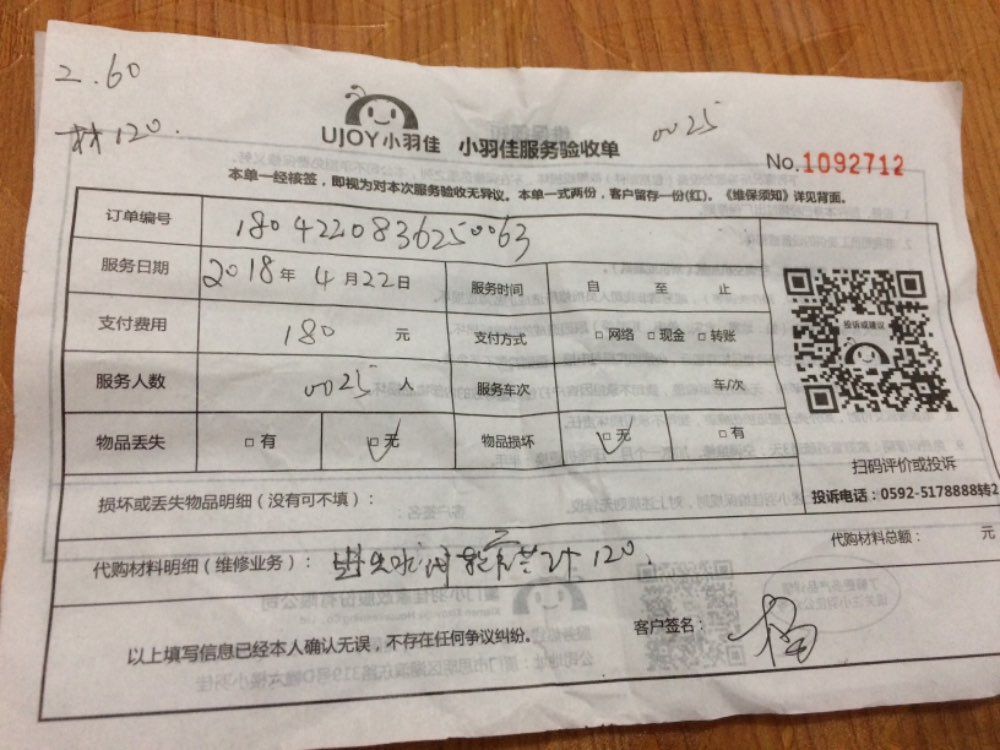 2.60
材120.
UJOY小羽佳 小羽佳服务验收单
0025
No.1092712
本单一经核签，即视为对本次服务验收无异议。本单一式两份，客户留存一份(红)。《维保须知》详见背面。
订单编号 1804220836250063
服务日期 2018年4月22日 服务时间 自 至 止
支付费用 180 元 支付方式 □网络 □现金 □转账
投诉或建议
服务人数 0025人 服务车次 车/次
物品丢失 □有 □无 物品损坏 □无 □有
扫码评价或投诉
损坏或丢失物品明细（没有可不填）：
投诉电话：0592-5178888转2
代购材料明细（维修业务）： 120
代购材料总额： 元
以上填写信息已经本人确认无误，不存在任何争议纠纷。
客户签名： 杨